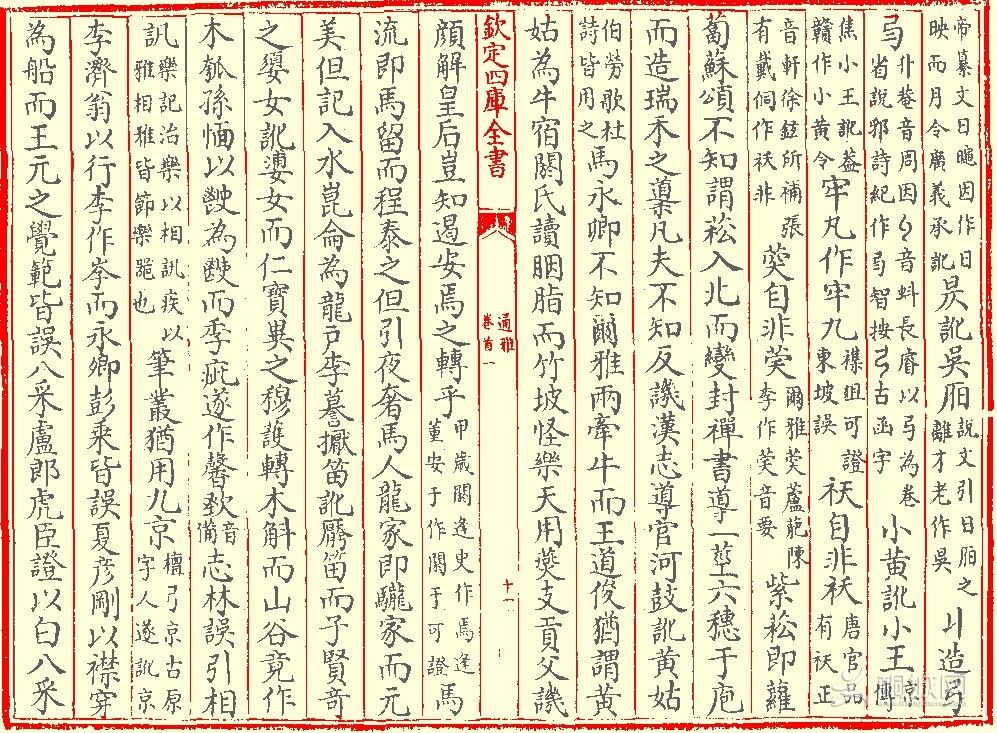 帝纂文日因作日
映而月令廣義承訛
昃訛吳
說文引日之
離才老作吳
丩造弓
弓
升菴音周因音蚪長睿以弓為卷
省說邪詩紀作弓智按弓古函字
小黃訛小王
京
傳
焦小王訛葢
贛作小黃令
牢丸作牢九
襍俎可證
東坡誤
祆自非袄
唐官品
有祆正
音軒徐鉉所補張
有戴侗作祆非
葖自非葵
爾雅葖蘆萉陳
李作芺音要
紫菘即蘿
蔔蘇頌不知謂菘入北而變封禪書導一莖六穗于庖
而造瑞禾之導凡夫不知反譏漢志導官河鼓訛黃姑
伯勞歌杜
詩皆用之
馬永卿不知爾雅兩牽牛而王道俊猶謂黃
姑為牛宿閼氏讀胭脂而竹坡怪樂天用燕支貢父譏
欽定四庫全書
通雅
卷首一
十一
顔解皇后豈知遏安焉之轉乎
甲歲閼逢史作焉逢
董安于作閼于可證
馬
流即馬留而程泰之但引夜奢馬人龍家即驪家而元
美但記入水崑侖為龍户李謩擫笛訛靨笛而子賢奇
之婺女訛婆女而仁寶異之穆護轉木斛而山谷竟作
木瓠孫愐以為而季疵遂作罄欬
音
備
志林誤引相
訊
樂記治樂以相訊疾以
雅相雅皆節樂器也
筆叢猶用九京
檀弓京古原
字人遂訛京
李濟翁以行李作峯而永卿彭乘皆誤夏彦剛以襟穿
為船而王元之覺範皆誤八釆盧郎虎臣證以白八釆